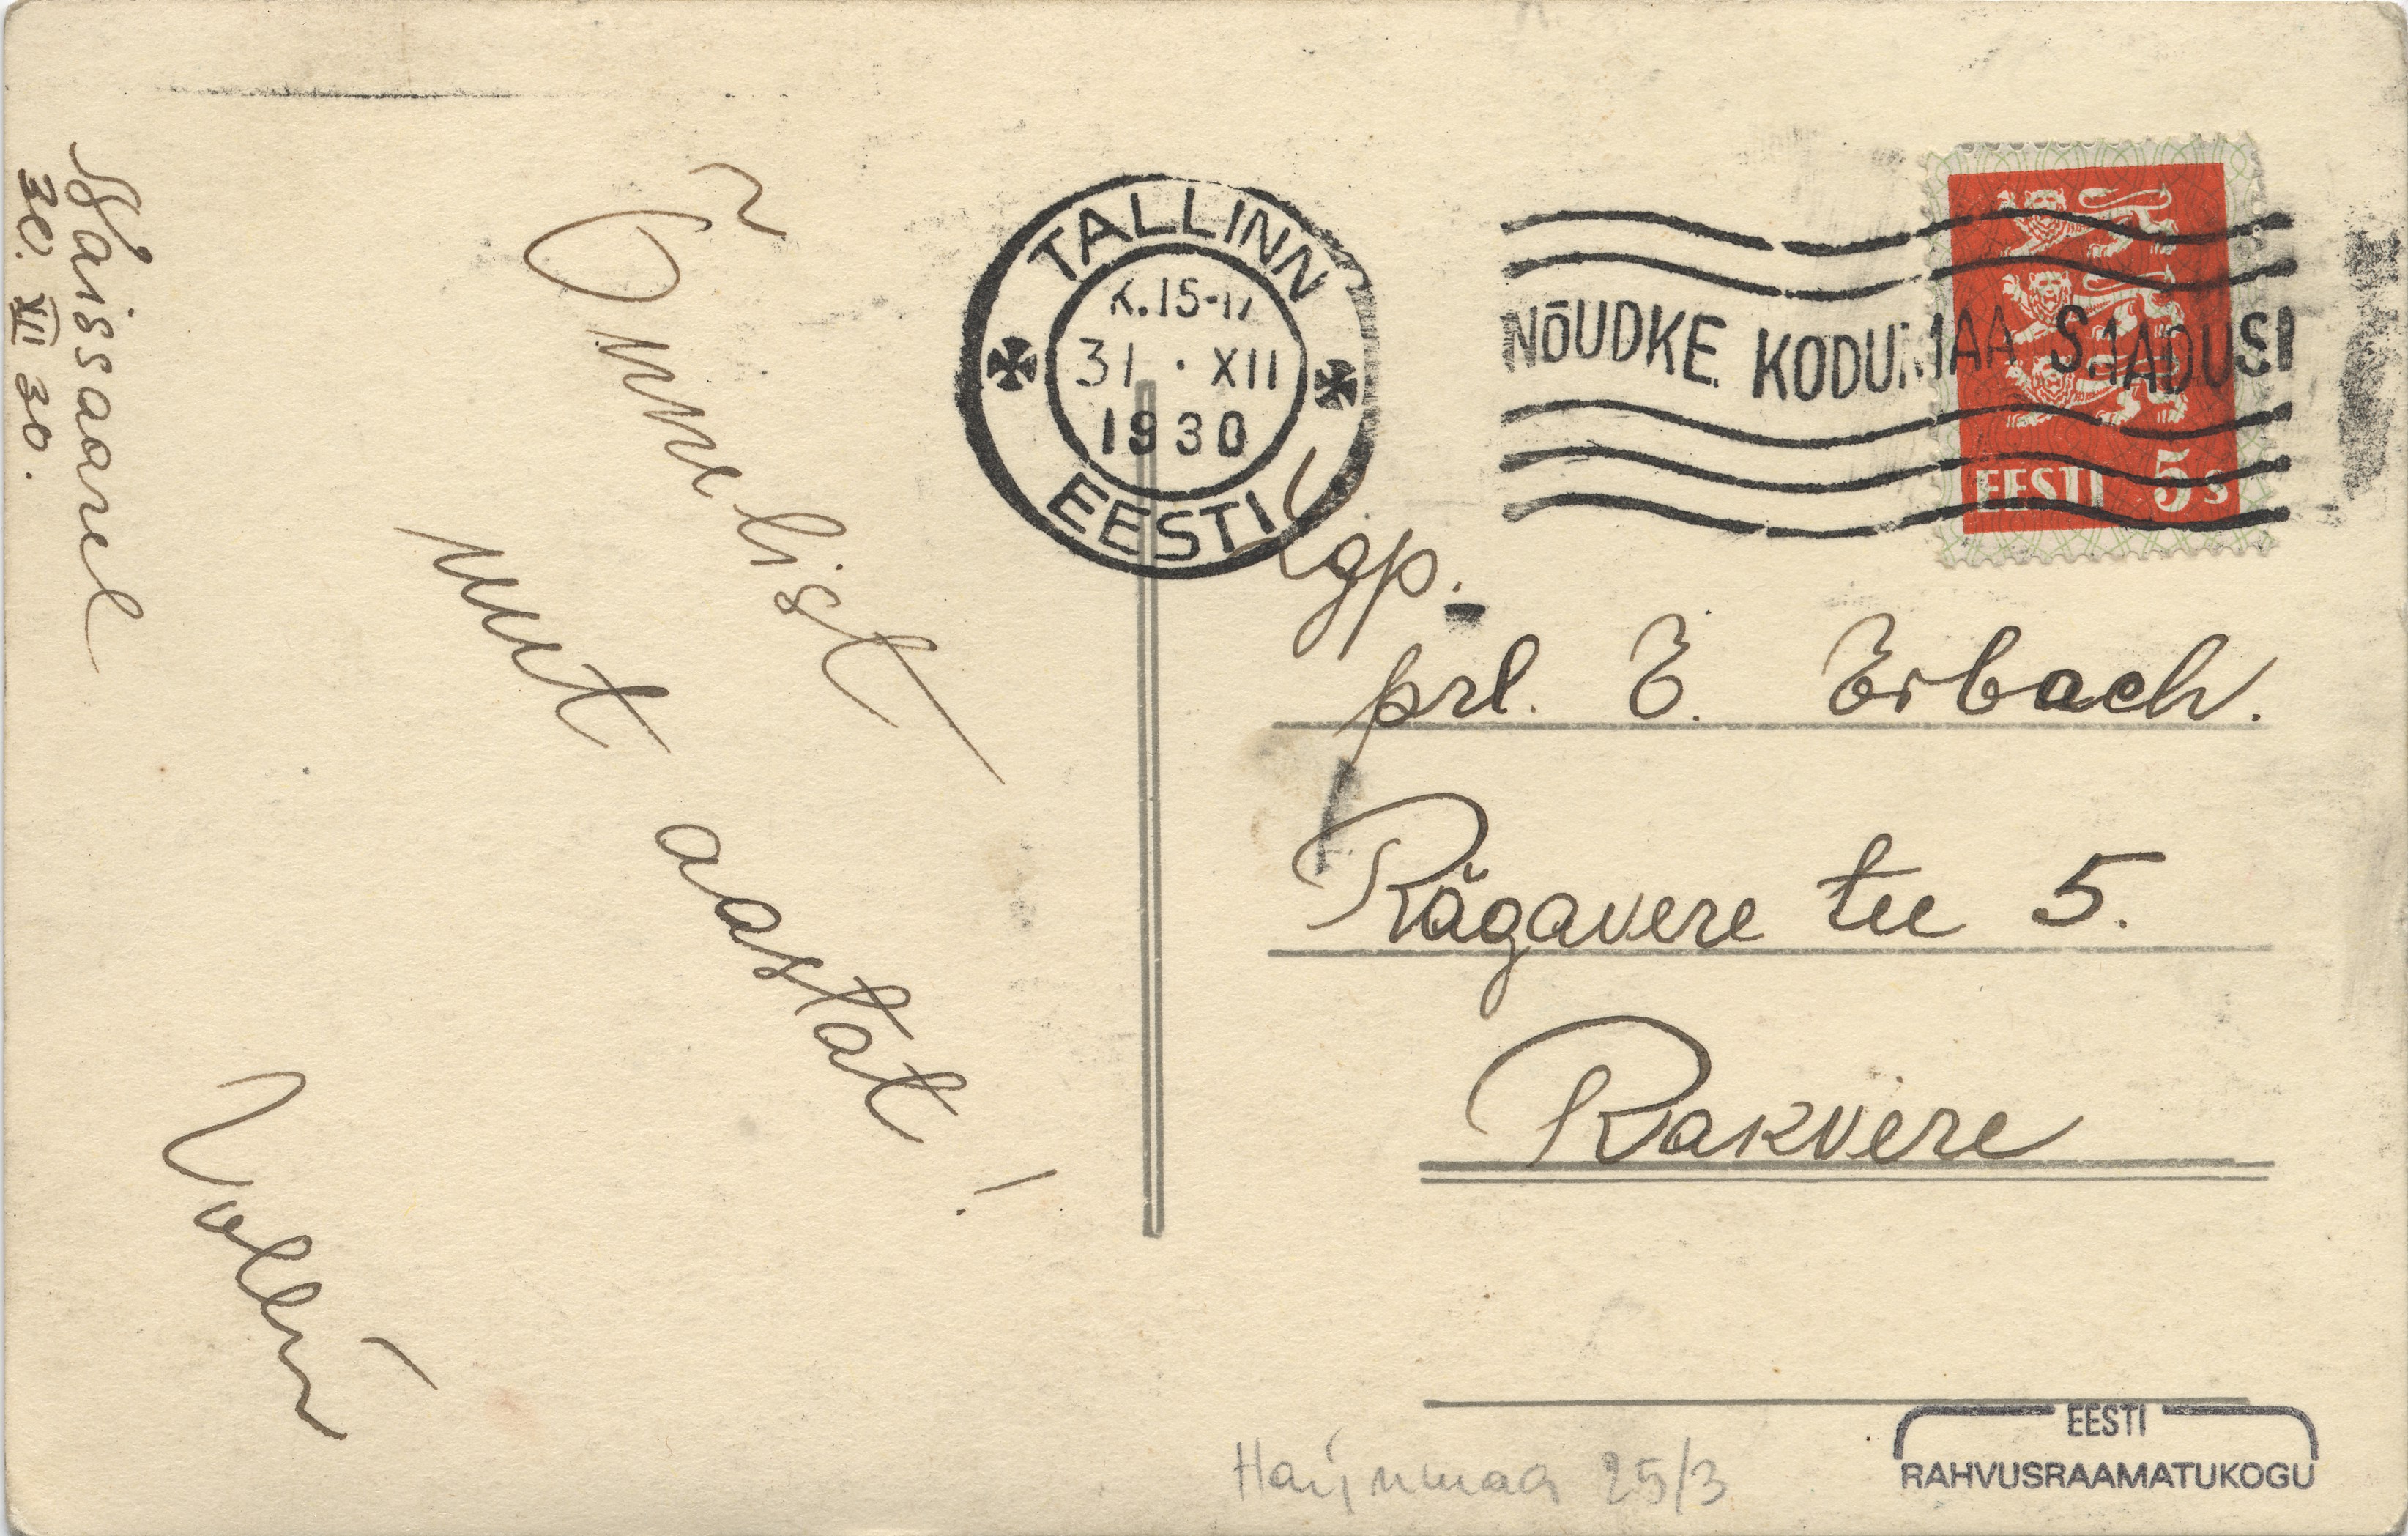 Naissaarel
30. XII 30.
Õnnelist
uut aastat!
TALLINN
K. 15-17
31 · XII
1930
EESTI
NÕUDKE KODUMAA SAADUSI
EESTI 5 s
Lgp.
prl. E. Erbach.
Rägavere tee 5.
Rakvere
Harjumaa 25/3
EESTI
RAHVUSRAAMATUKOGU